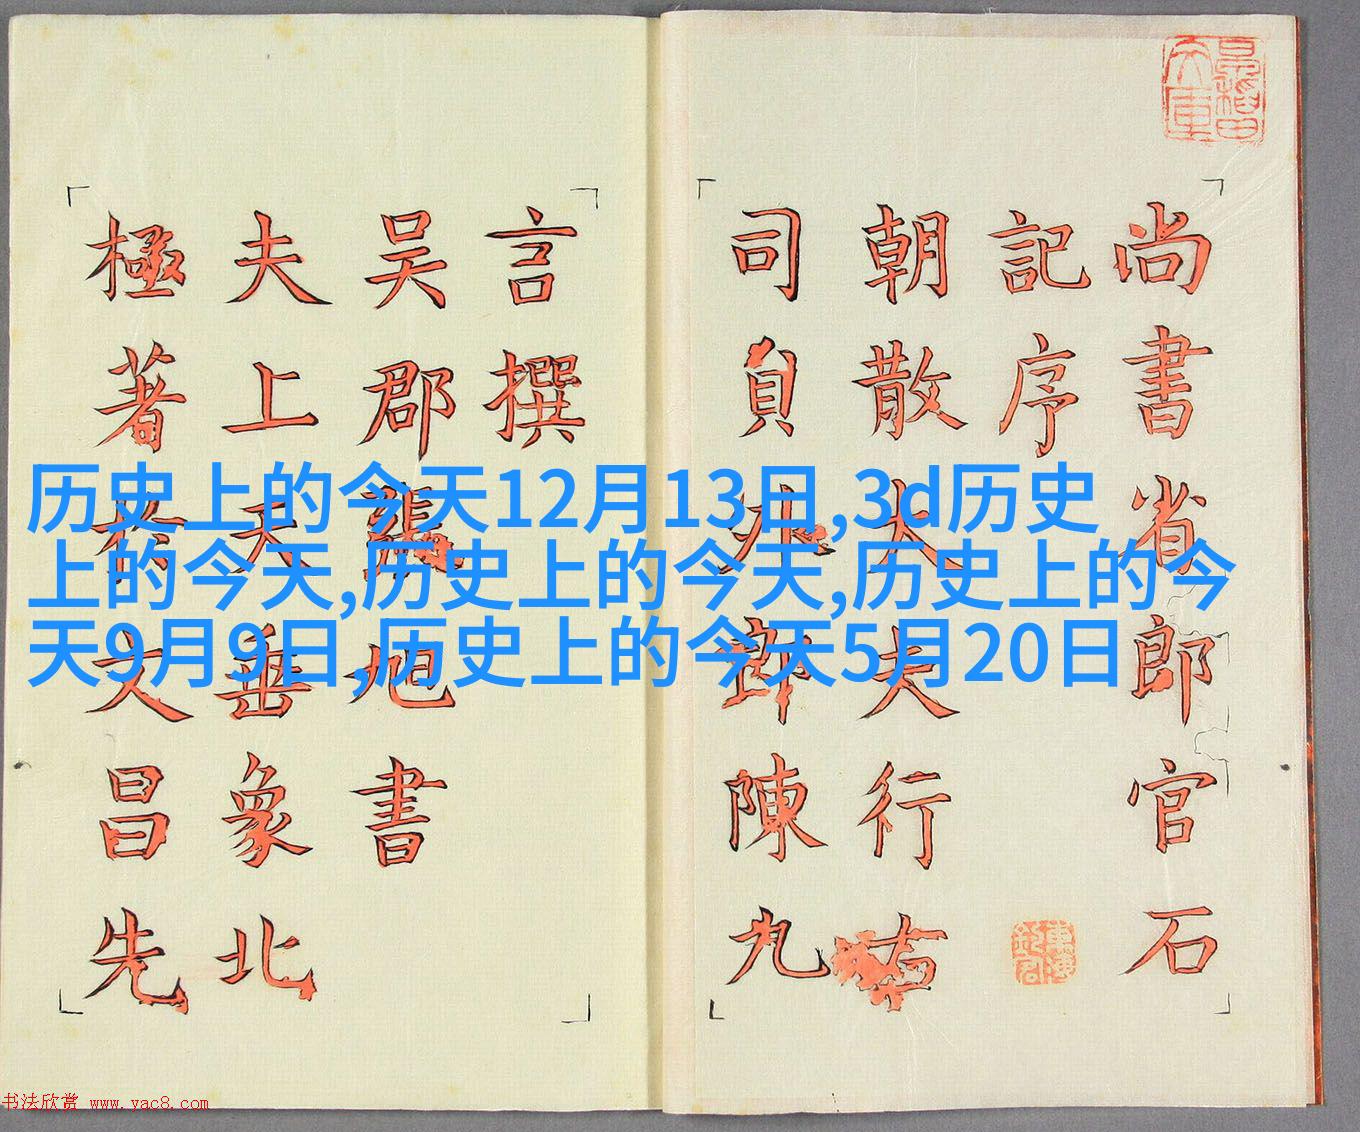 尚書省郎官石
記序
朝散大夫行右
司員外郎陳九
言撰
吴郡張旭書
夫上天垂象北
極著於文昌先
历史上的今天12月13日,3d历史
上的今天,历史上的今天,历史上的今
天9月9日,历史上的今天5月20日
书法欣赏 www.yac8.com